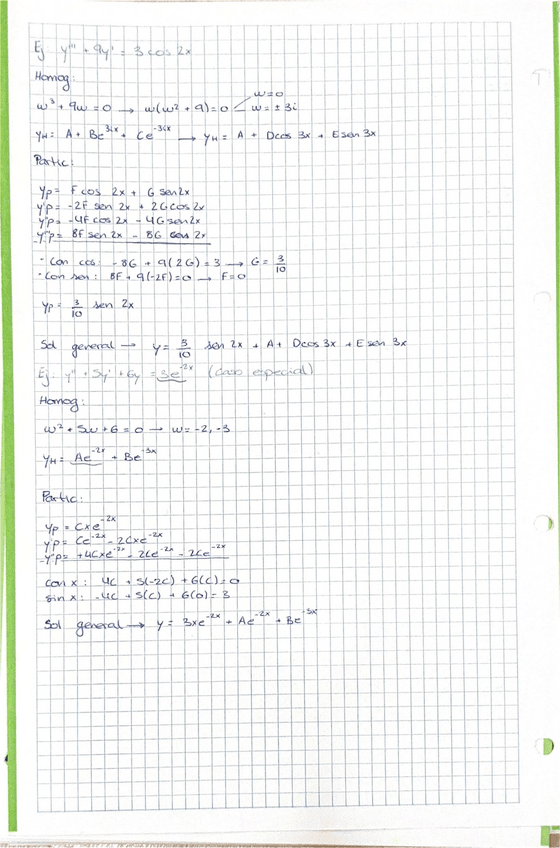 Ej: y''' + 9y' = 3 cos 2x
Homog:
w³ + 9w = 0 → w(w² + 9) = 0 w = 0
w = ± 3i
yH = A + Be^3ix + Ce^-3ix → yH = A + Dcos 3x + Esen 3x
Partic:
yp = F cos 2x + G sen 2x
y'p = -2F sen 2x + 2G cos 2x
y''p = -4F cos 2x - 4G sen 2x
y'''p = 8F sen 2x - 8G cos 2x
· Con cos: -8G + 9(2G) = 3 → G = 3/10
· Con sen: 8F + 9(-2F) = 0 → F = 0
yp = 3/10 sen 2x
Sol general → y = 3/10 sen 2x + A + Dcos 3x + E sen 3x
Ej: y'' + 5y' + 6y = 3e^-2x (caso especial)
Homog:
w² + 5w + 6 = 0 → w = -2, -3
yH = Ae^-2x + Be^-3x
Partic:
yp = Cxe^-2x
y'p = Ce^-2x - 2Cxe^-2x
y''p = +4Cxe^-2x - 2Ce^-2x - 2Ce^-2x
con x: 4C + 5(-2C) + 6(C) = 0
sin x: -4C + 5(C) + 6(0) = 3
Sol general → y = 3xe^-2x + Ae^-2x + Be^-3x